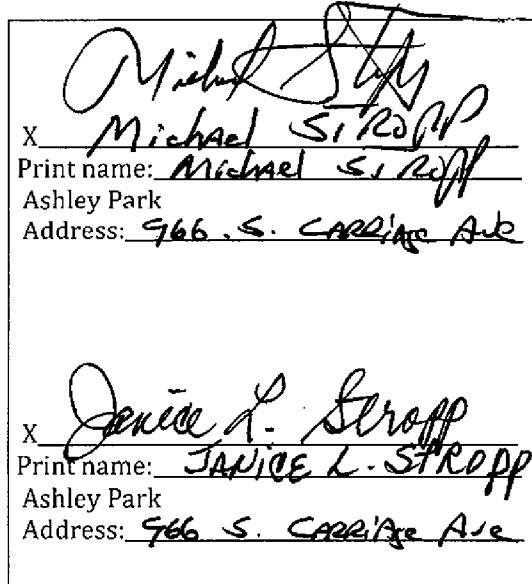 Michael Stropp
X Michael Stropp
Print name: Michael Stropp
Ashley Park
Address: 966 . S. CARRiAge Ave
X Janice L. Stropp
Print name: JANiCE L. STROpp
Ashley Park
Address: 966 S. CARRiAge Ave